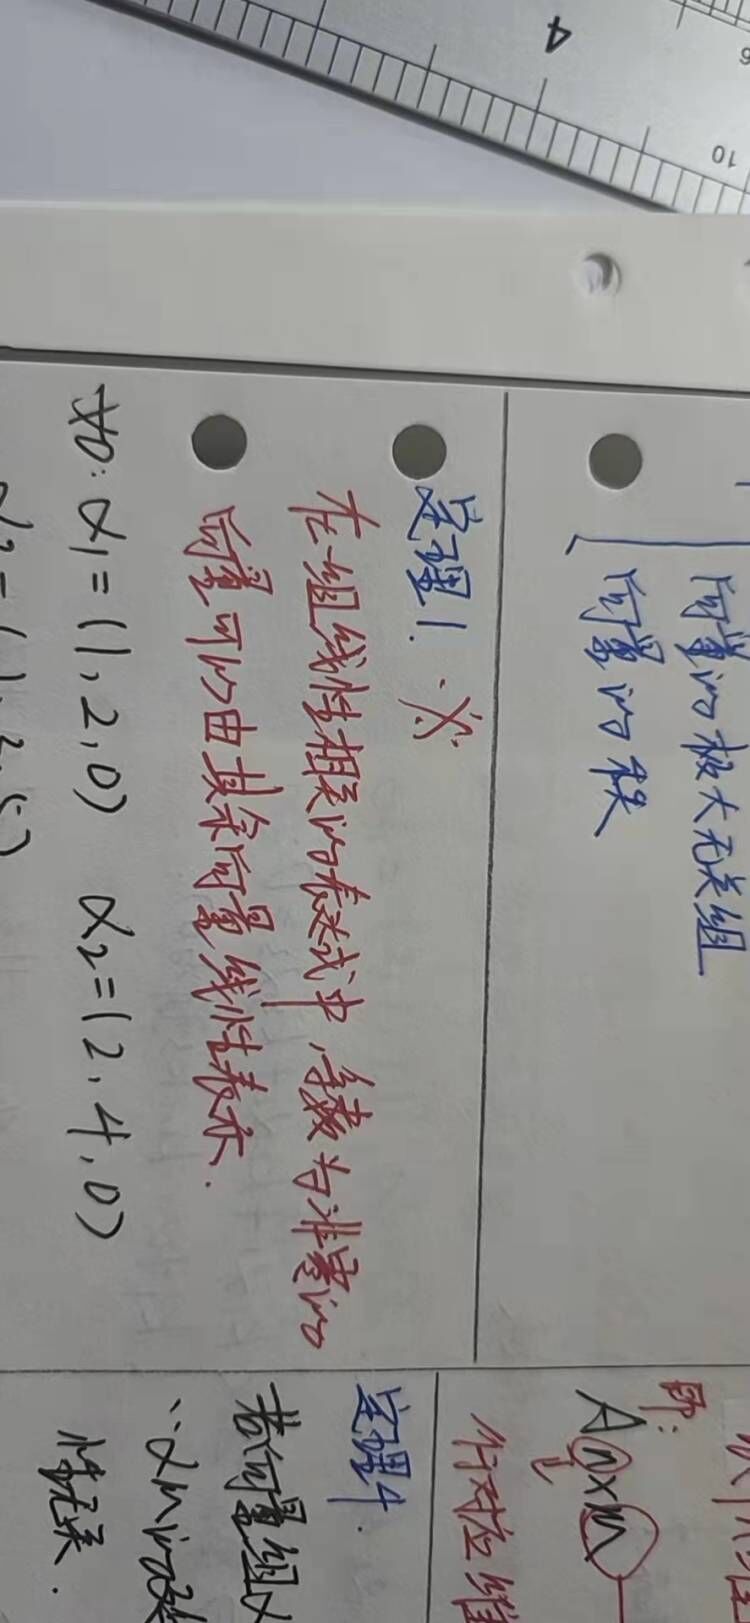 向量的极大无关组
向量的秩
定理1. ※
在一组线性相关的表达式中,系数为非零的
向量可以由其余向量线性表示.
如: α1=(1,2,0) α2=(2,4,0)
即:
An×m
行对应维
定理4.
若向量组
性无关.
4
10